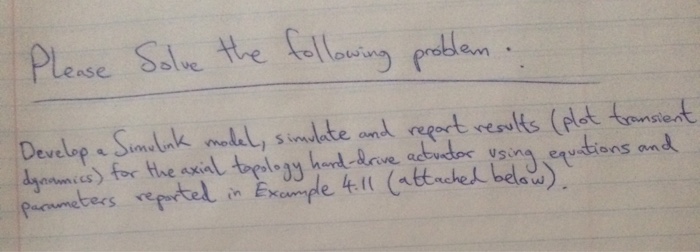 Please Solve the following problem :
Develop a Simulink model, simulate and report results (plot transient
dynamics) for the axial topology hard-drive actuator using equations and
parameters reported in Example 4.11 (attached below).